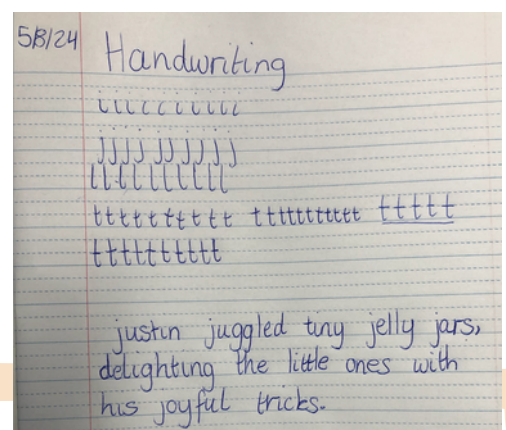 5/3/24
Handwriting
i i i i i i i i i i
j j j j j j j j j j
l l l l l l l l l l
t t t t t t t t t t t t t t t t t t t t t t t t t
t t t t t t t t t t
justin juggled tiny jelly jars,
delighting the little ones with
his joyful tricks.